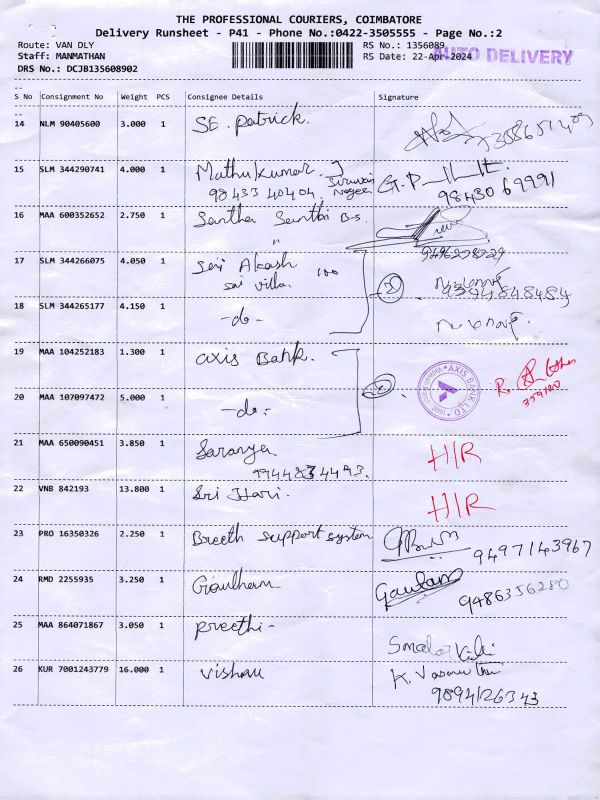 THE PROFESSIONAL COURIERS, COIMBATORE
Delivery Runsheet - P41 - Phone No.:0422-3505555 - Page No.:2
Route: VAN DLY RS No.: 1356089
Staff: MANMATHAN RS Date: 22-Apr-2024 AUTO DELIVERY
DRS No.: DCJB135608902
S No Consignment No Weight PCS Consignee Details Signature
14 NLM 90405600 3.000 1 SE. Patrick.
15 SLM 344290741 4.000 1 Muthukumar. J
98433 40404. Nagar G.P 98430 69991
16 MAA 600352652 2.750 1 Santha Santhi B-s.
9496228229
17 SLM 344266075 4.050 1 Sri Akash 100
sai villa. 9394848484
18 SLM 344265177 4.150 1 -do-
19 MAA 104252183 1.300 1 axis Bank. AXIS BANK LTD R.
20 MAA 107097472 5.000 1 -do- 359120
21 MAA 650090451 3.850 1 Saranya H/R
9944834493.
22 VNB 842193 13.800 1 Sri Hari. H/R
23 PRO 16350326 2.250 1 Breeth support system 9497143967
24 RMD 2255935 3.250 1 Goutham Gautam
9486356280
25 MAA 864071867 3.050 1 preethi-
26 KUR 7001243779 16.000 1 Vishnu K. Vasanthi
9894126343